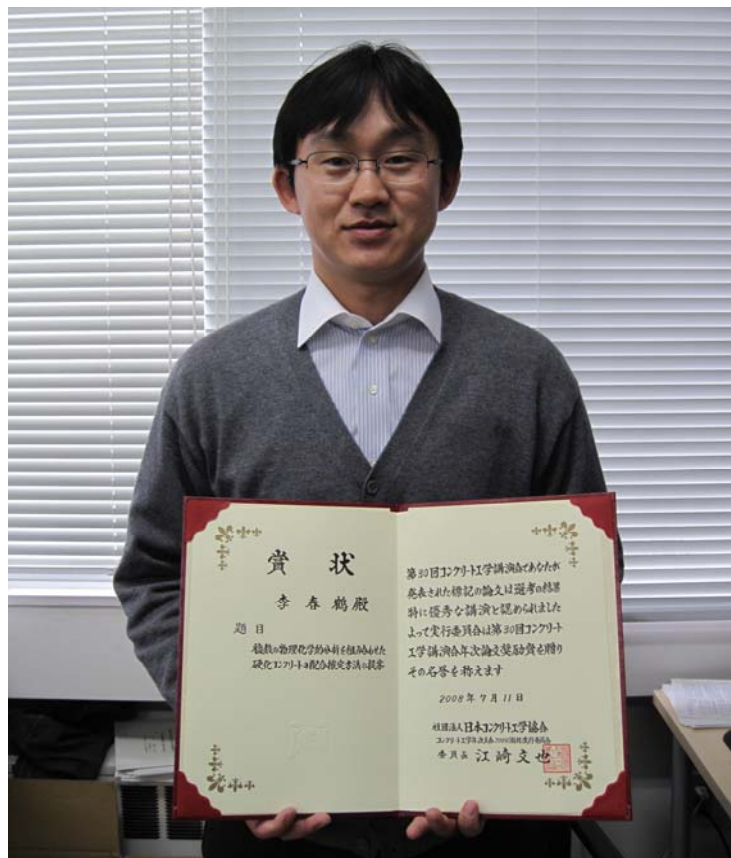 賞状
李春鶴殿
題目
複数の物理化学的分析を組み合わせた
硬化コンクリートの配合推定方法の提案
第30回コンクリート工学講演会であなたが
発表された標記の論文は選考の結果
特に優秀な講演と認められました
よって実行委員会は第30回コンクリート
工学講演会年次論文奨励賞を贈り
その名誉を称えます
2008年7月11日
社団法人日本コンクリート工学協会
委員長 江崎文也